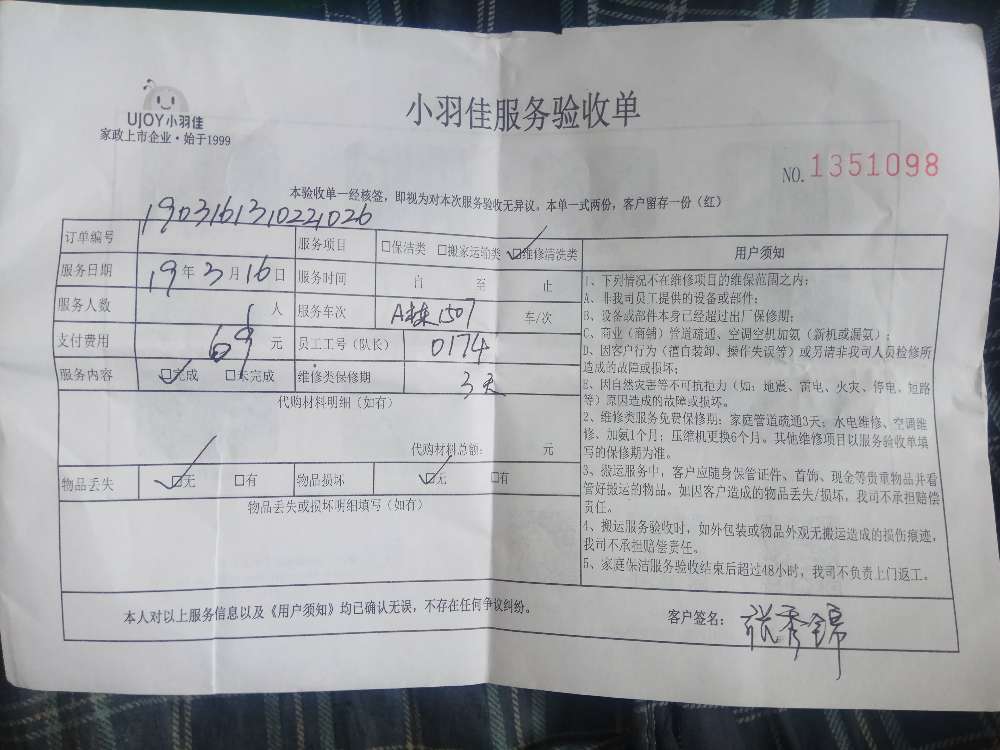 UJOY小羽佳
家政上市企业·始于1999
小羽佳服务验收单
NO.1351098
本验收单一经核签，即视为对本次服务验收无异议。本单一式两份，客户留存一份（红）
订单编号 1903161310221026 服务项目 □保洁类 □搬家运输类 ☑维修清洗类
服务日期 19年3月16日 服务时间 自 至 止
服务人数 1人 服务车次 A栋1507 车/次
支付费用 69元 员工工号（队长） 0174
服务内容 ☑完成 □未完成 维修类保修期 3天
代购材料明细（如有）
代购材料总额： 元
物品丢失 ☑无 □有 物品损坏 ☑无 □有
物品丢失或损坏明细填写（如有）
用户须知
1、下列情况不在维修项目的维保范围之内：
A、非我司员工提供的设备或部件；
B、设备或部件本身已经超过出厂保修期；
C、商业（商铺）管道疏通、空调空机加氨（新机或漏氨）；
D、因客户行为（擅自装卸、操作失误等）或另请非我司人员检修所
造成的故障或损坏；
E、因自然灾害等不可抗拒力（如：地震、雷电、火灾、停电、短路
等）原因造成的故障或损坏。
2、维修类服务免费保修期：家庭管道疏通3天；水电维修、空调维
修、加氨1个月；压缩机更换6个月。其他维修项目以服务验收单填
写的保修期为准。
3、搬运服务中，客户应随身保管证件、首饰、现金等贵重物品并看
管好搬运的物品。如因客户造成的物品丢失/损坏，我司不承担赔偿
责任。
4、搬运服务验收时，如外包装或物品外观无搬运造成的损伤痕迹，
我司不承担赔偿责任。
5、家庭保洁服务验收结束后超过48小时，我司不负责上门返工。
本人对以上服务信息以及《用户须知》均已确认无误，不存在任何争议纠纷。
客户签名：张秀锦